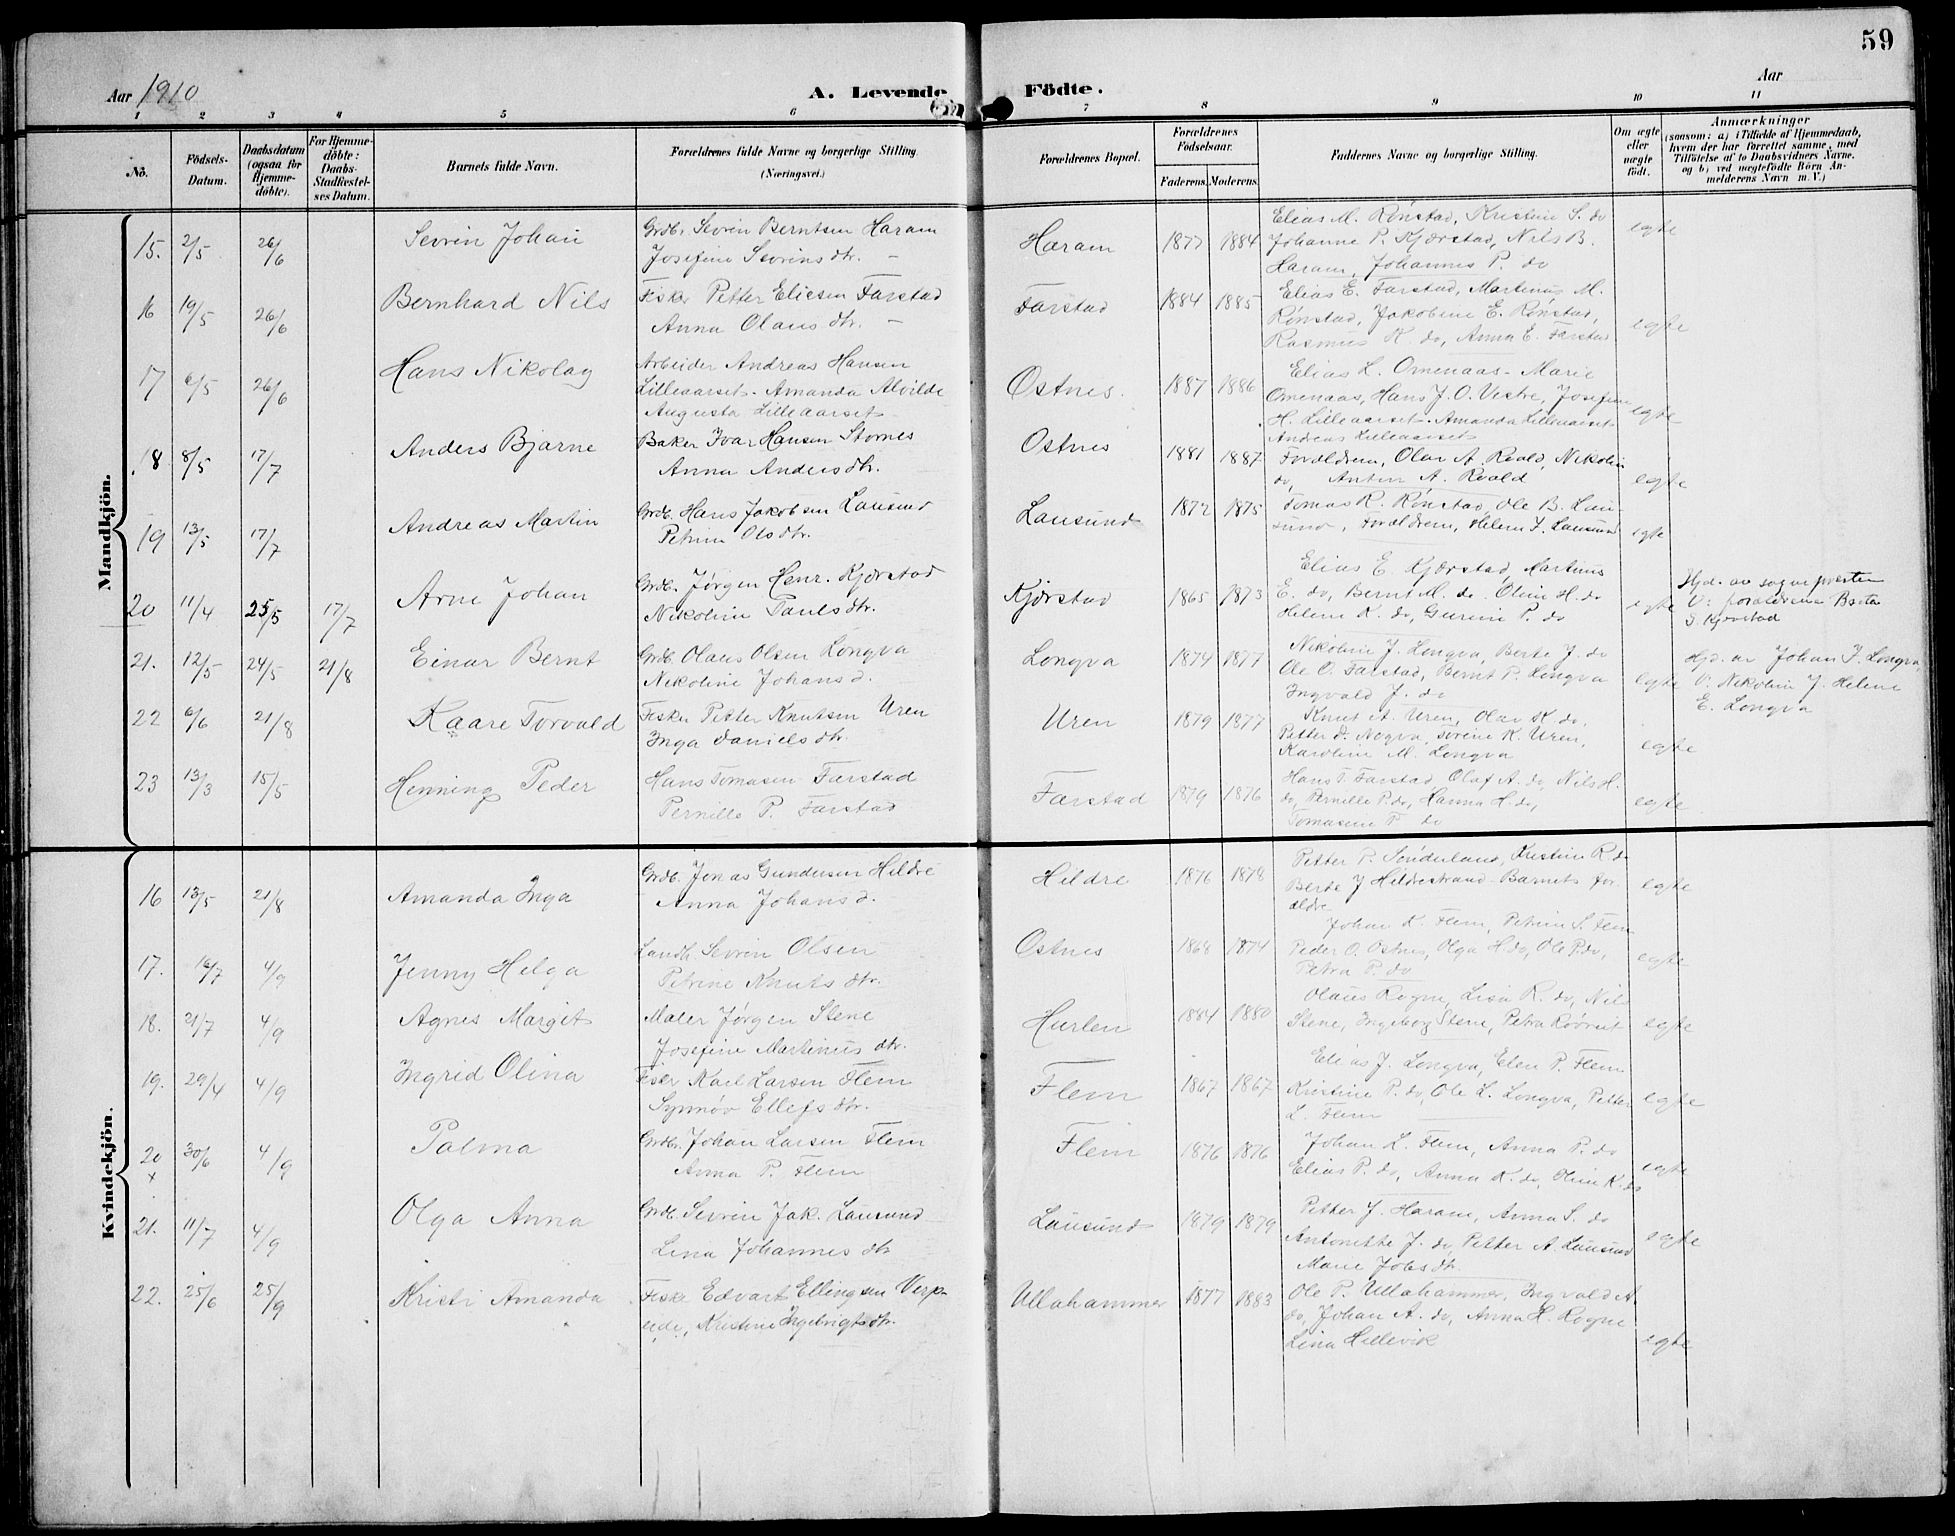 59
Aar 1910
A. Levende
Födte.
Aar
1 2 3 4 5 6 7 8 9 10 11
No.
Födsels-Datum.
Daabsdatum (ogsaa for Hjemme-döbte).
For Hjemme-döbte: Daabs-Stadfæstel-ses Datum.
Barnets fulde Navn.
Forældrenes fulde Navne og borgerlige Stilling. (Næringsvei.)
Forældrenes Bopæl.
Forældrenes Födselsaar.
Faderens. Moderens.
Faddernes Navne og borgerlige Stilling.
Om ægte eller uægte født.
Anmærkninger
(saasom: a) i Tilfælde af Hjemmedaab,
hvem der har forrettet samme, med
Tilföielse af to Daabsvidners Navne.
og b) ved uægtefödte Börn An-
melderens Navn m. V.)
Mandkjön.
15. 2/5 26/6 Sevrin Johan
Grdb. Sevrin Berntsen Haram
Josefine Sevrins dtr. -
Haram 1877 1884
Elias M. Rønstad, Kristine S. do
Johanne P. Kjærstad, Nils B.
Haram, Johannes P. do
egte
16 19/5 26/6 Bernhard Nils
Fisker Petter Eliesen Farstad
Anna Olaus dtr. -
Farstad 1884 1885
Elias E. Farstad, Martinus M.
Rønstad, Jakobine E. Rønstad,
Rasmus K. do, Anna E. Farstad
egte
17 6/5 26/6 Hans Nikolay
Arbeider Andreas Hansen
Lilleaarset - Amanda Alvilde
Augusta Lilleaarset
Ostnes. 1887 1886
Elias L. Omenaas - Marie
Omenaas, Hans J. O. Vestre, Josefine
H. Lilleaarset. Amanda Lilleaarset
Andreas Lilleaarset
egte
18 8/5 17/7 Anders Bjarne
Baker Ivar Hansen Stornes
Anna Anders dtr.
Ostnes 1881 1887
Foraldrene, Olav A. Roald, Nikoline
do, Anton A. Roald
egte
19 13/5 17/7 Andreas Martin
Grdb. Hans Jakobsen Lausund
Petrine Ols dtr.
Lausund 1872 1875
Tomas R. Rønstad, Ole B. Lau
sund, Foraldrene, Helene J. Lausund
egte
20 11/4 25/5 17/7 Arne Johan
Grdb. Jørgen Henr. Kjærstad
Nikoline Pauls dtr.
Kjærstad 1865 1873
Elias E. Kjærstad, Martinus
E. do, Bernt M. do. Oline H. do
Helene K. do, Gurine P. do
egte
Hjd. av sognepresten
V: foraldrene Berte
S. Kjærstad
21. 12/5 24/5 21/8 Einar Bernt
Grdb. Olaus Olsen Longva
Nikoline Johans d.
Longva 1874 1877
Nikoline J. Longva, Berte J. do
Ole O. Farstad, Bernt P. Longva
Ingvald J. do
egte
Hjd. av Johan J. Longva
V: Nikoline J. Helene
E. Longva
22 6/6 21/8 Kaare Torvald
Fisker Petter Knutsen Uren
Inga Daniels dtr.
Uren 1879 1877
Knut A. Uren, Olav K. do,
Petter D. Nogva, Sørine K. Uren,
Karoline M. Longva
egte
23 13/3 15/5 Henning Peder
Hans Tomasen Farstad
Pernille P. Farstad
Farstad 1879 1876
Hans T. Farstad, Olaf A. do, Nils H.
do, Pernille P. do, Hanna H. do,
Tomasine T. do
egte
Kvindekjön.
16 13/5 21/8 Amanda Inga
Grdb. Jonas Gundersen Hildre
Anna Johans d.
Hildre 1876 1878
Petter P. Sønderland, Kristine R. do
Berte J Hildrestrand - Barnets for
aldre
egte
17. 16/7 4/9 Jenny Helga
Landh. Sevrin Olsen
Petrine Knuts dtr.
Ostnes 1868 1874
Johan K. Flem, Petrine S. Flem
Peder O. Ostnes, Olga H. do, Ole P. do,
Petra P. do
egte
18. 21/7 4/9 Agnes Margit
Maler Jørgen Stene
Josefine Martinus dtr.
Hurlen 1884 1880
Olaus Rogne, Lisa R. do, Nils
Stene, Ingeborg Stene, Petra Røorset
egte
19. 29/4 4/9 Ingrid Olina
Fsker Karl Larsen Flem
Synnøv Ellefs dtr.
Flem 1867 1867
Elias J. Longva, Elen P. Flem
Kristine P. do, Ole L. Longva, Petter
L. Flem
egte
20 x 30/6 4/9 Palma
Grdbr. Johan Larsen Flem
Anna P. Flem
Flem 1876 1876
Johan L. Flem, Anna P. do
Elias P. do, Anna K. do, Oline K. do
egte
21. 11/7 4/9 Olga Anna
Grdb. Sevrin Jak. Lausund
Lina Johannes dtr
Lausund 1879 1879
Petter J. Haram, Anna S. do
Antonette J. do, Petter A. Lausund
Marie Jobs dtr.
egte
22. 25/6 25/9 Kristi Amanda
Fisker Edvart Ellingsen Verp-
eide, Kristine Ingebrigts dtr.
Ullahammer 1877 1883
Ole P. Ullahammer, Ingvald A.
do, Johan A. do, Anna H. Rogne
Lina Hellevik
egte